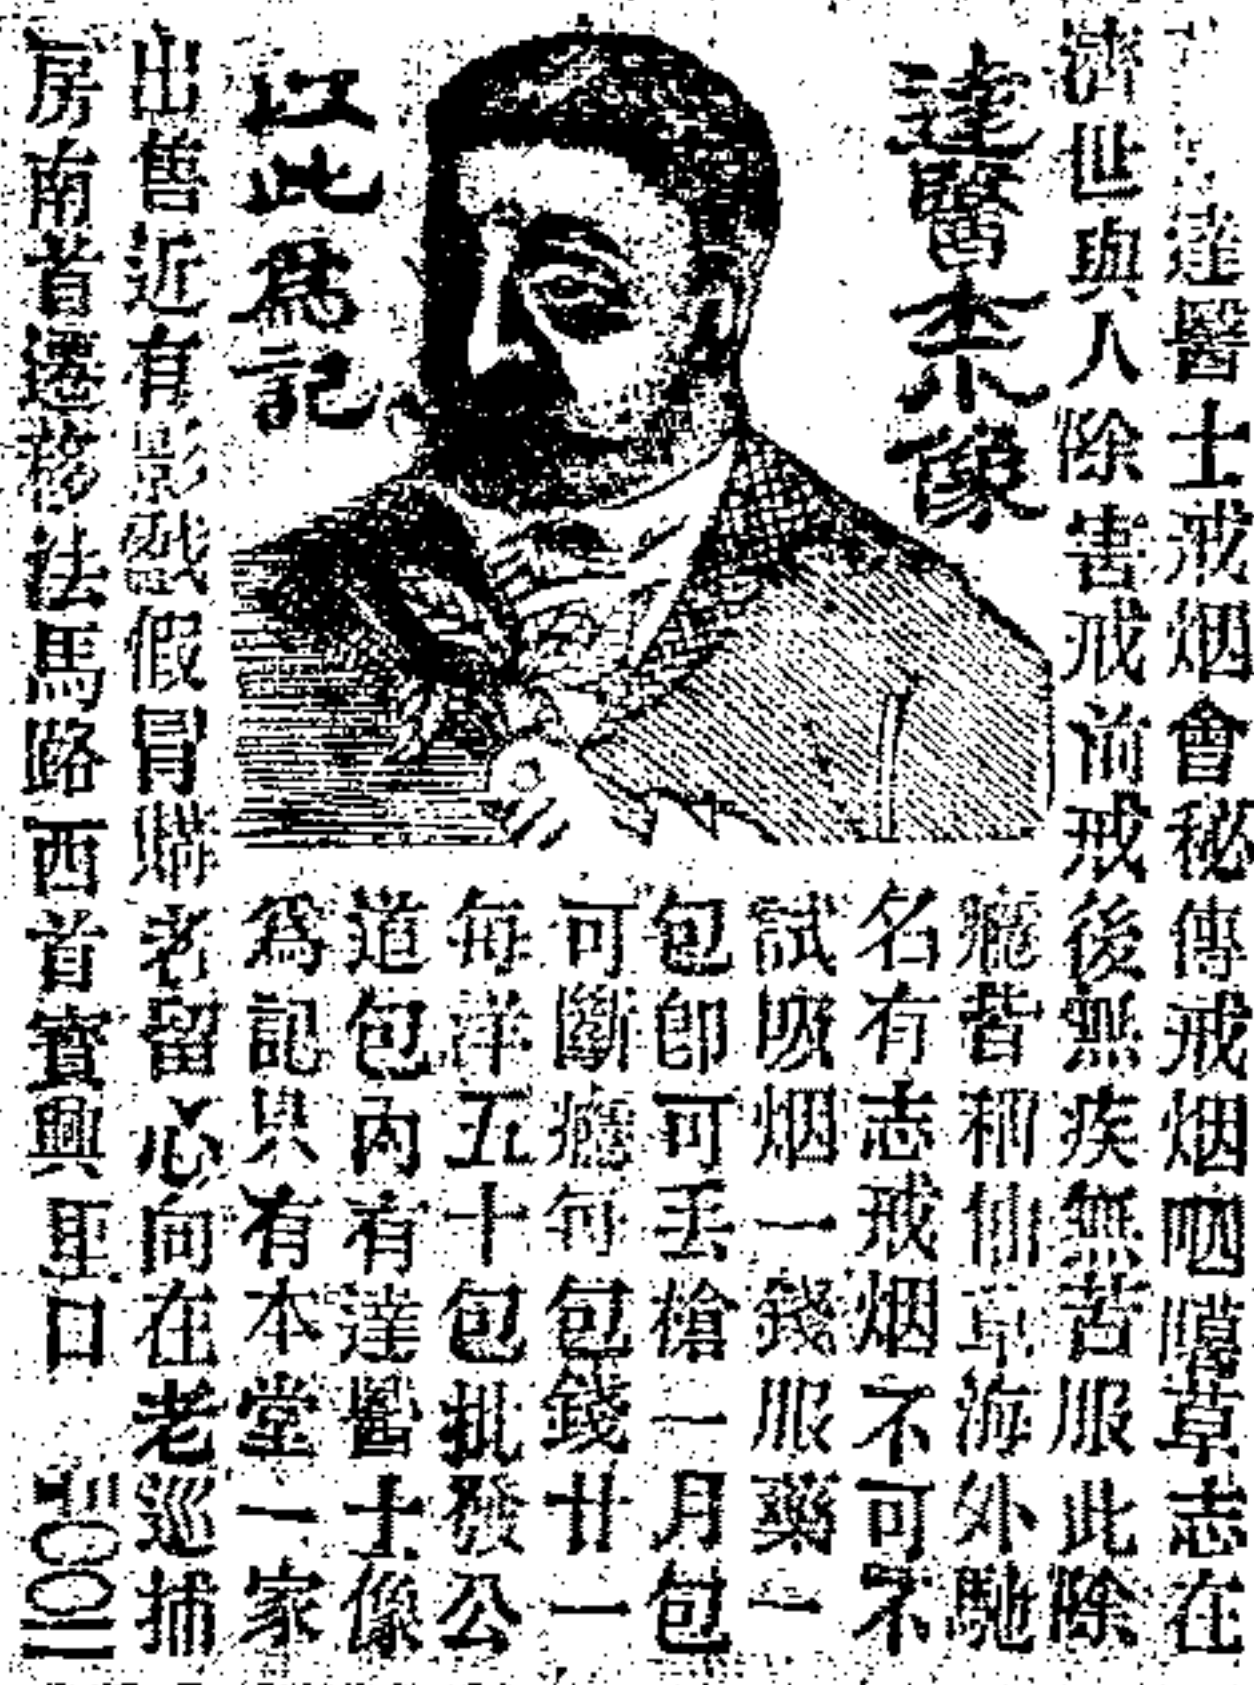 達醫士戒烟會秘傳戒烟㗲嚩草志在
濟世與人除害戒前戒後無疾無苦服此除
達醫士像
癮皆稱仙草海外馳
名有志戒烟不可不
試吸烟一錢服藥一
包即可丟槍一月包
可斷癮每包錢廿一
每洋五十包批發公
道包內有達醫士像
爲記只有本堂一家
以此爲記
出售近有影戤假冒購者留心向在老巡捕
房南首遷移法馬路西首寶興里口